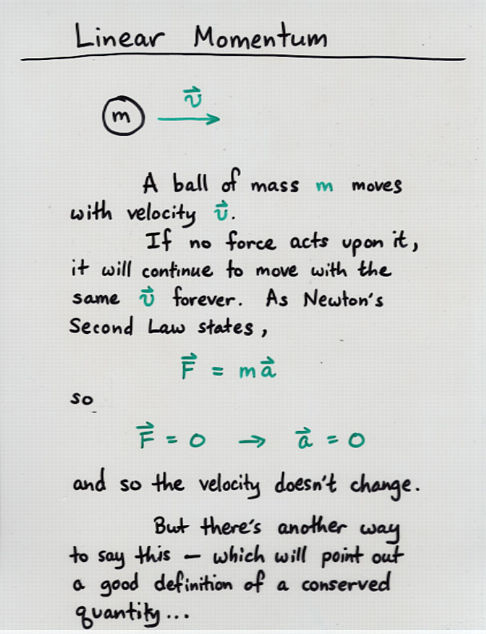 Linear Momentum
m v⃗
A ball of mass m moves
with velocity v⃗.
If no force acts upon it,
it will continue to move with the
same v⃗ forever. As Newton's
Second Law states,
F⃗ = ma⃗
so
F⃗ = 0 → a⃗ = 0
and so the velocity doesn't change.
But there's another way
to say this – which will point out
a good definition of a conserved
quantity...